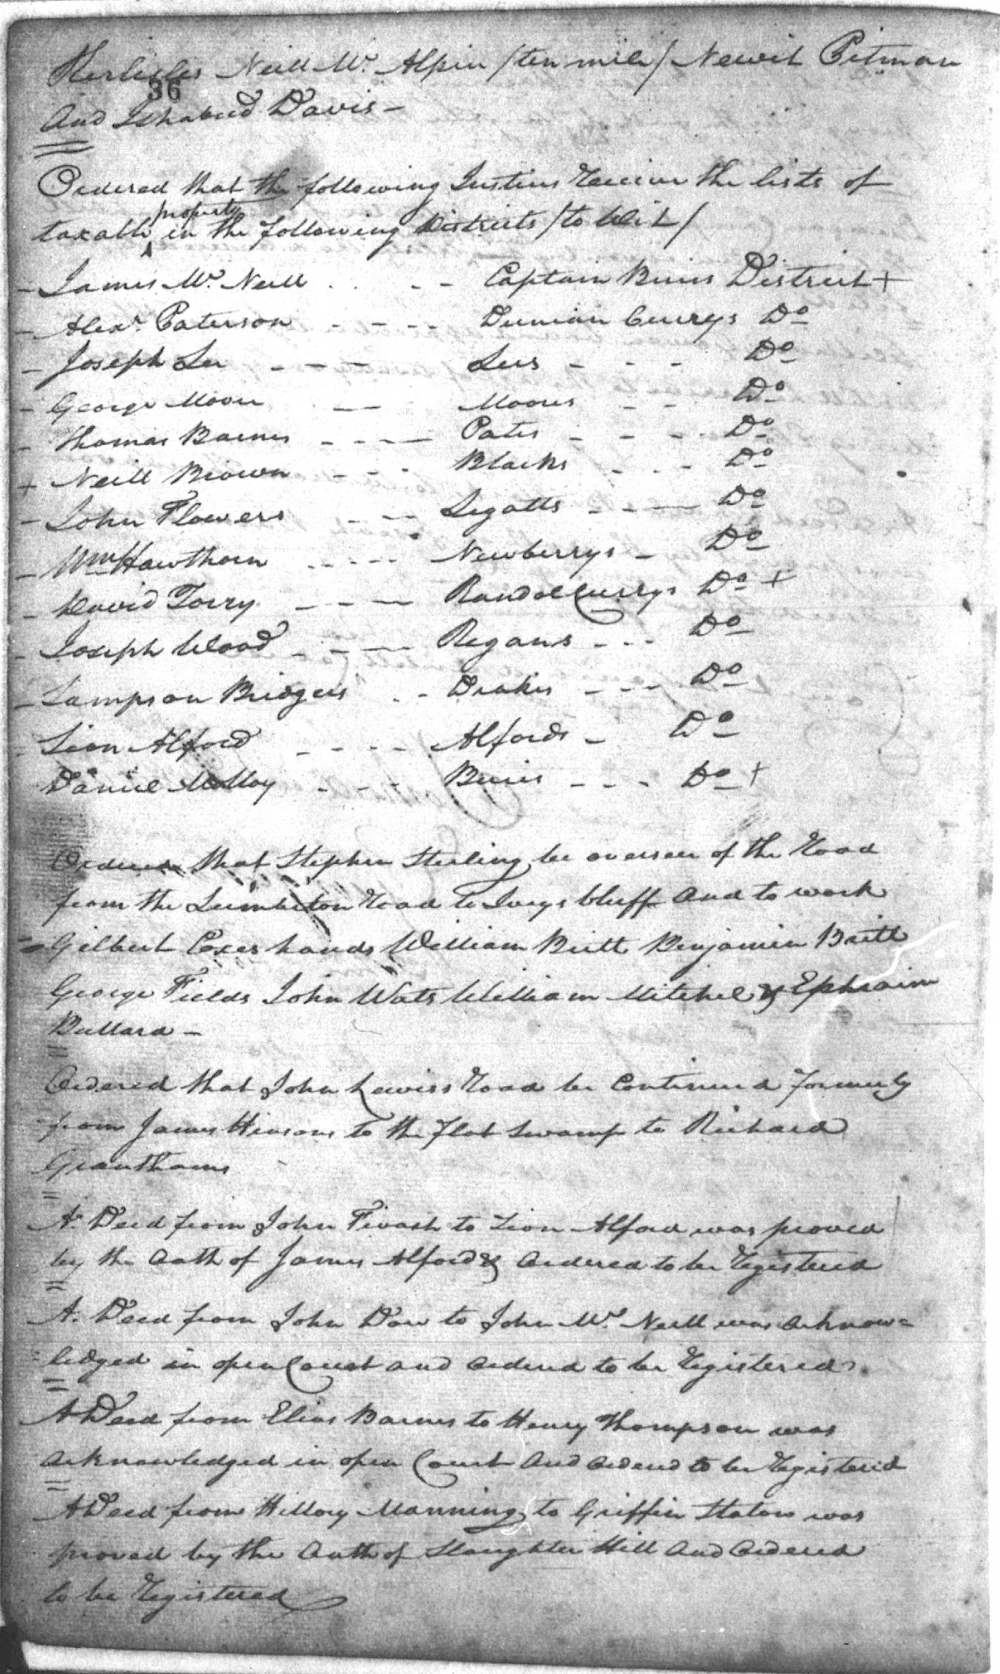 Neill Mc. Alpin /ten mile/ Newit Pitman
36
And Ichabud Davis –
Ordered that the following Justices Receive the lists of
property
taxable in the following Districts /to Wit/
James Mc. Neill . . - - Captain District +
Alexr. Paterson - - - - Duncan Currys Do
Joseph Lee - - - Lees - - - Do
George Moore - - Moores - - Do
Thomas Barnes - - - - Pates - - - Do
+ Neill Brown - - - Blacks - - - Do
John Flowers - - - Legatts - - - Do
Wm Hawthorn - - - - - Newberrys - Do
David Torry - - - Randol Currys Do +
Joseph Wood - - - - Regans - - - Do
Sampson Bridgers - - Drakes - - - Do
Lion Alford - - - - Alfords - Do
Daniel McCloy - - - - - - - Do +
Ordered that Stephen Sterling be overseer of the Road
from the Lumberton Road to Iveys bluff And to work
Gilbert Coxes hands William Britt Benjamin Britt
George Fields John Wats William Mitchel & Ephraim
Bullard –
Ordered that John Lewiss Road be Continued formerly
from James Hinsons to the flat Swamp to Richard
Granthams
A Deed from John to Lion Alford was proved
by the Oath of James Alford & Ordered to be Registered
A. Deed from John Dow to John Mc. Neill was Acknow=
ledged in open Court and Ordered to be Registered.
A Deed from Elias Barnes to Henry Thompson was
Acknowledged in open Court And Ordered to be Registered
A Deed from Hillory Manning to Griffin Staton was
proved by the Oath of Slaughter Hill And Ordered
to be Registered